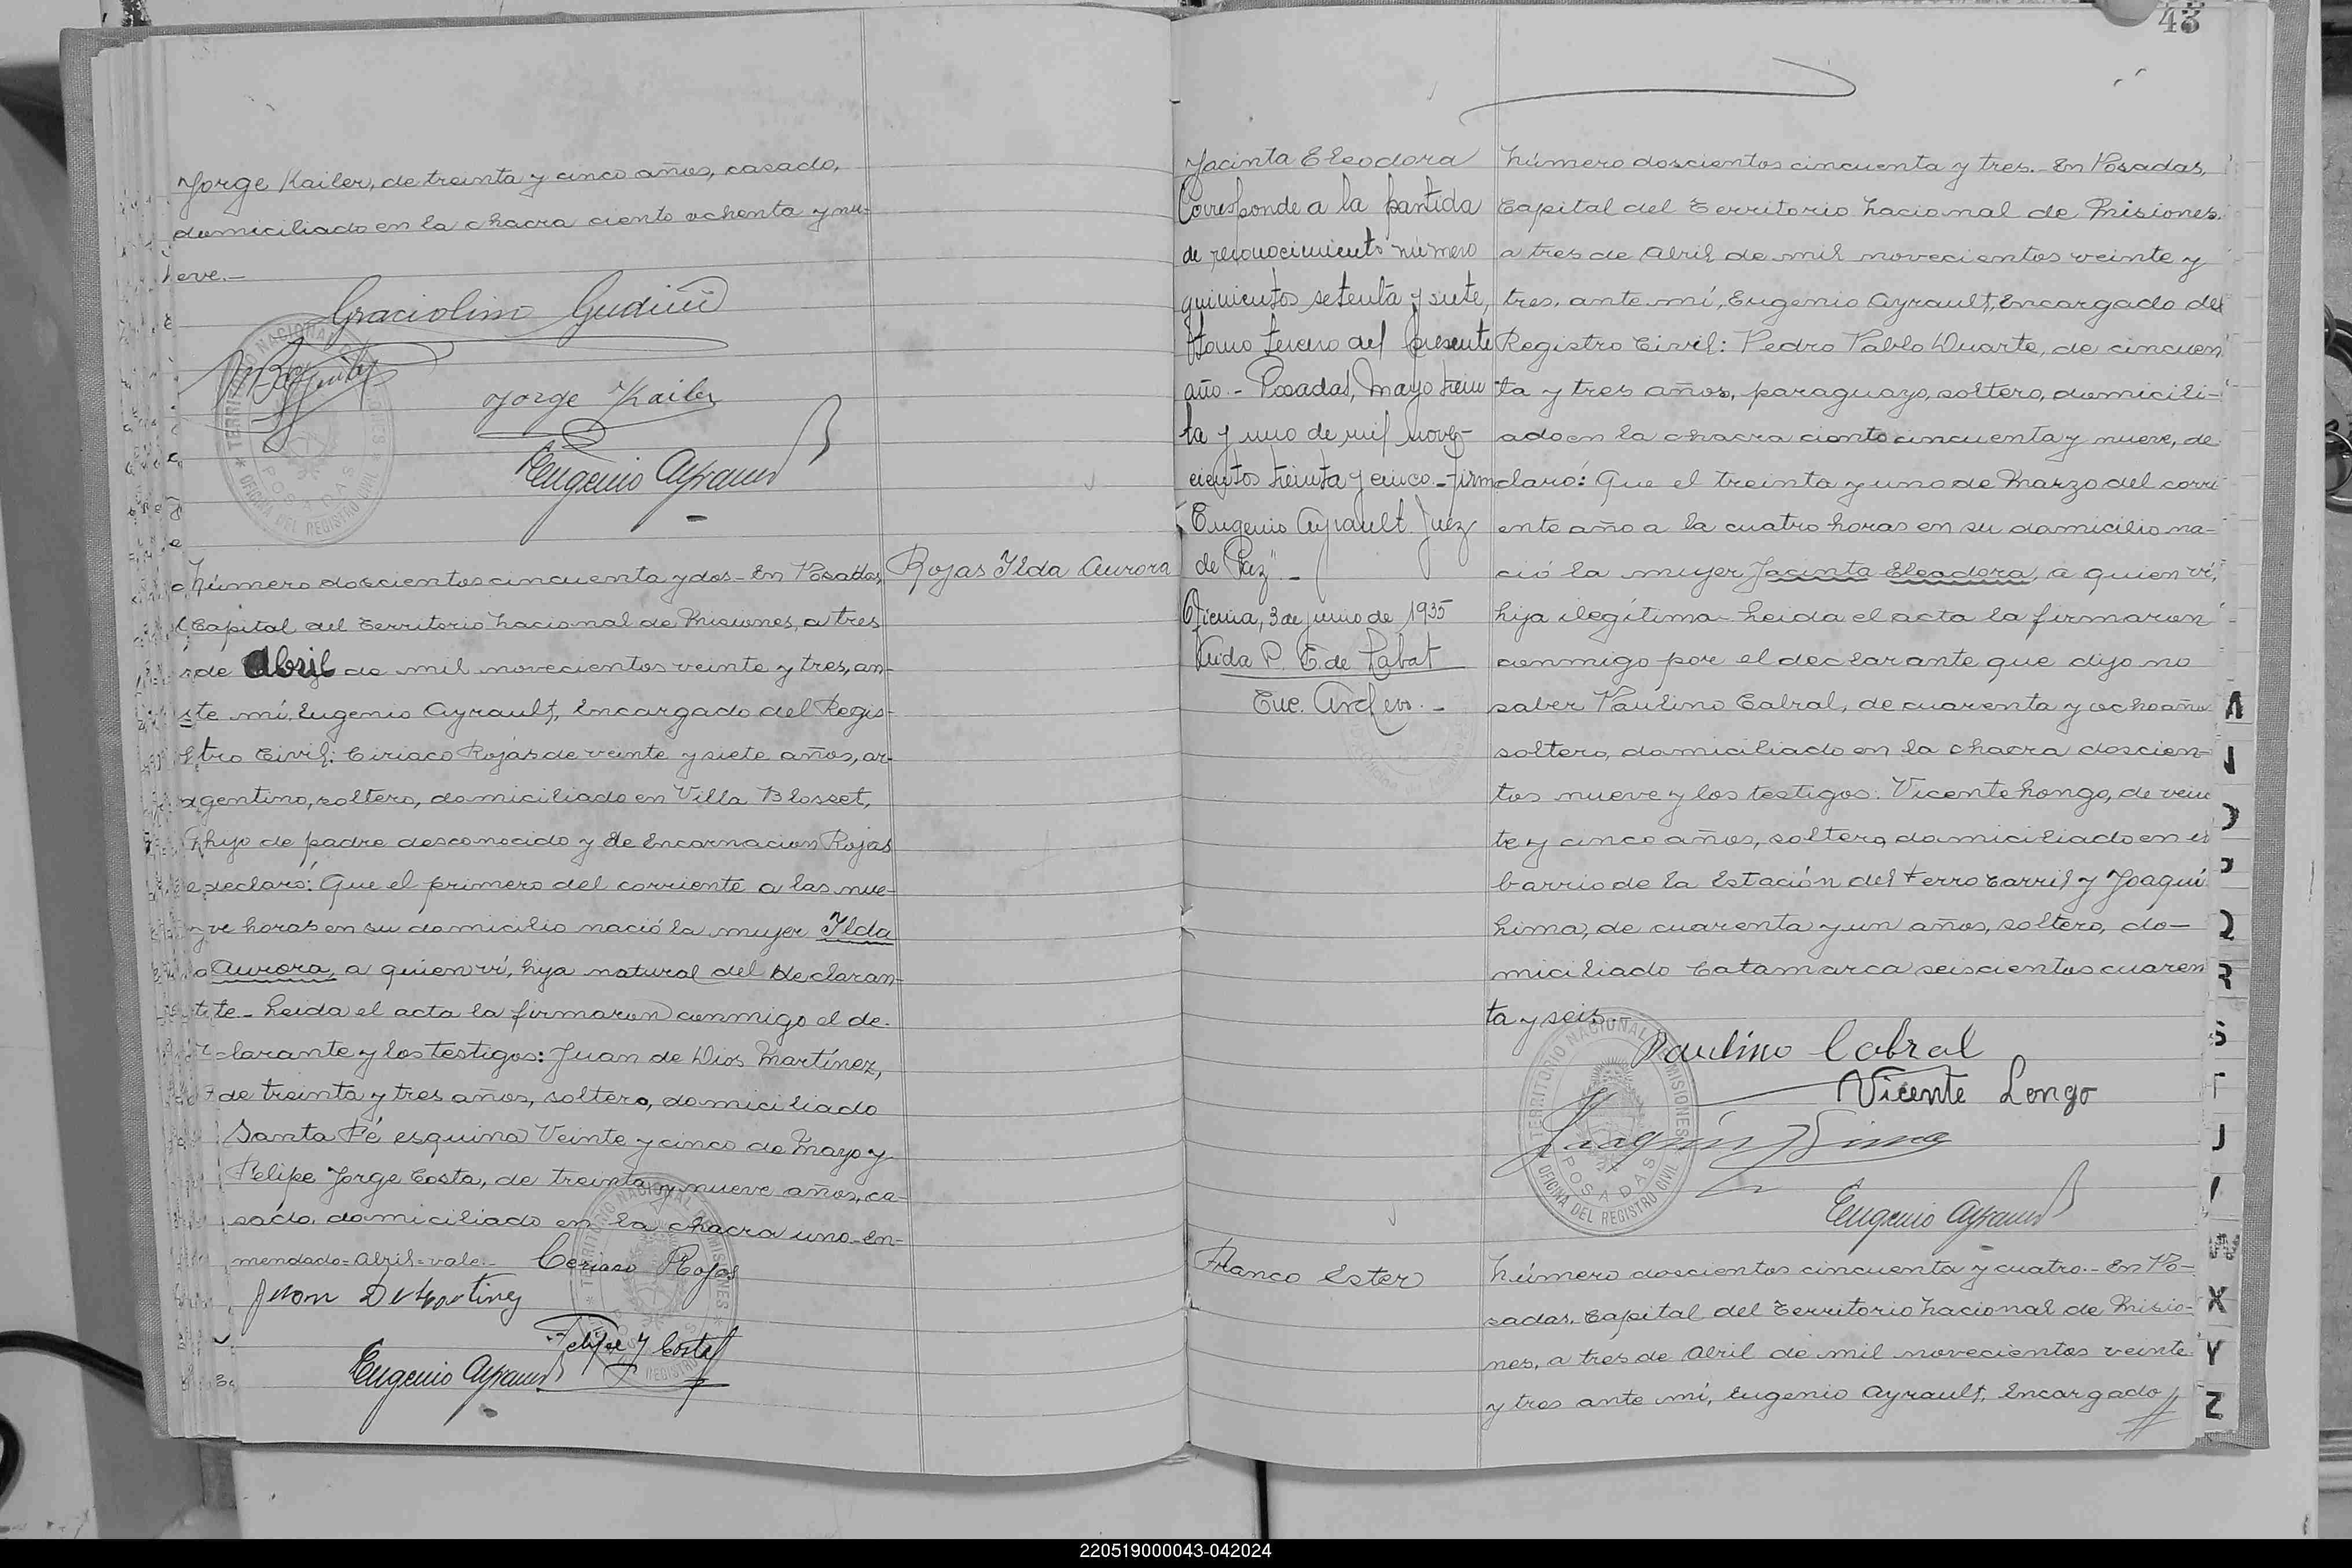 Jorge Kailer, de treinta y cinco años, casado,
domiciliado en la chacra ciento ochenta y nu-
eve.-
Graciolino Gudiñi
Jorge Kailer
Eugenio Ayrault
TERRITORIO NACIONAL DE MISIONES
POSADAS
OFICINA DEL REGISTRO CIVIL
Rojas Ilda Aurora
Número doscientos cincuenta y dos - En Posadas,
Capital del Territorio Nacional de Misiones, a tres
de Abril de mil novecientos veinte y tres, an-
te mí, Eugenio Ayrault, Encargado del Regis-
tro Civil: Ciriaco Rojas de veinte y siete años, ar-
gentino, soltero, domiciliado en Villa Blosset,
hijo de padre desconocido y de Encarnacion Rojas
declaró: Que el primero del corriente a las nue-
ve horas en su domicilio nació la mujer Ilda
Aurora, a quien ví, hija natural del declaran-
te - Leida el acta la firmaron conmigo el de-
clarante y los testigos: Juan de Dios Martínez,
de treinta y tres años, soltero, domiciliado
Santa Fé esquina Veinte y cinco de Mayo y
Felipe Jorge Costa, de treinta y nueve años, ca-
sado, domiciliado en la chacra uno - En-
mendado = Abril = vale.-
Ceriaco Rojas
Juan D Martinez
Felipe J Costa
Eugenio Ayrault
43
Jacinta Eleodora
Corresponde a la partida
de reconocimiento número
quinientos setenta y siete,
tomo tercero del presente
año.- Posadas, Mayo trein
ta y uno de mil nove-
cientos treinta y cinco - Firm
Eugenio Ayrault Juez
de Paz" -
Oficina, 3 de junio de 1935
P. E. de Labat
Enc. Archivo.-
Número doscientos cincuenta y tres.- En Posadas,
Capital del Territorio Nacional de Misiones,
a tres de Abril de mil novecientos veinte y
tres, ante mí, Eugenio Ayrault, Encargado del
Registro Civil: Pedro Pablo Duarte, de cincuen
ta y tres años, paraguayo, soltero, domicili-
ado en la chacra ciento cincuenta y nueve, de
claró: Que el treinta y uno de Marzo del corri
ente año a la cuatro horas en su domicilio na-
ció la mujer Jacinta Eleodora, a quien ví,
hija ilegítima - Leida el acta la firmaron
conmigo por el declarante que dijo no
saber Paulino Cabral, de cuarenta y ocho años
soltero, domiciliado en la chacra doscien-
tos nueve y los testigos: Vicente Longo, de vein
te y cinco años, soltero, domiciliado en el
barrio de la Estación del Ferro Carril y Joaquí
Lima, de cuarenta y un años, soltero, do-
miciliado Catamarca seiscientos cuaren
ta y seis.-
Paulino Cabral
Vicente Longo
Joaquín Lima
Eugenio Ayrault
TERRITORIO NACIONAL DE MISIONES
POSADAS
OFICINA DEL REGISTRO CIVIL
Franco Ester
Número doscientos cincuenta y cuatro.- En Po-
sadas, Capital del Territorio Nacional de Misio-
nes, a tres de Abril de mil novecientos veinte
y tres ante mí, Eugenio Ayrault, Encargado
Q
R
S
W
X
Y
Z
220519000043-042024